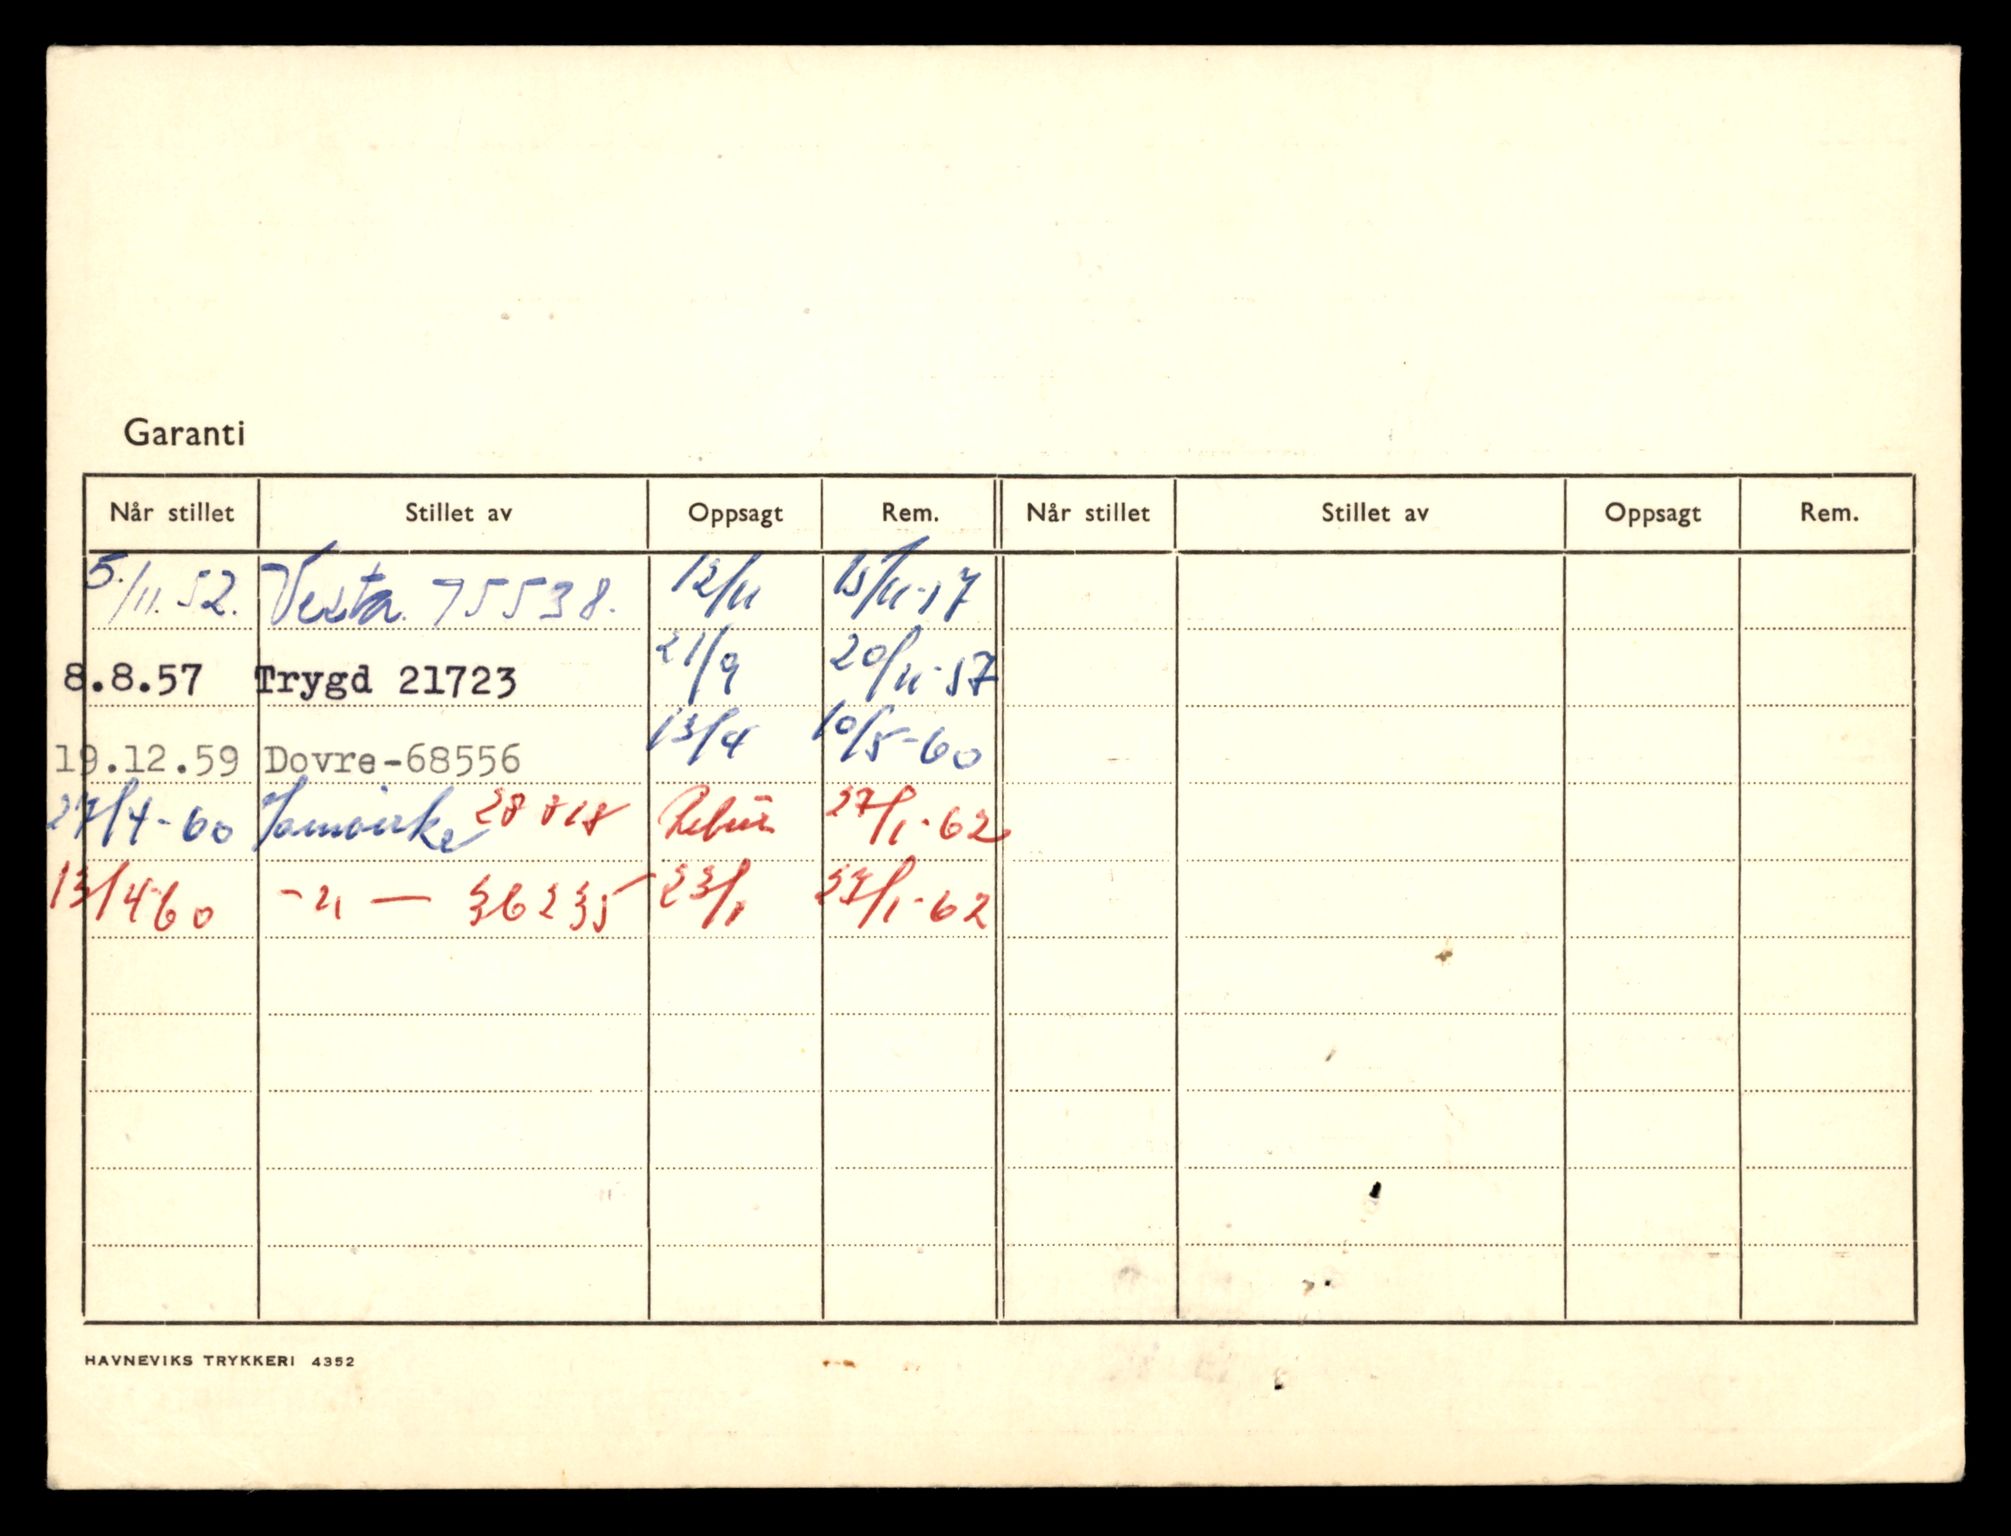 Garanti
Når stillet Stillet av Oppsagt Rem. Når stillet Stillet av Oppsagt Rem.
5./11.52. Vesta. 75538. 12/11 15/11-57
8.8.57 Trygd 21723 21/9 20/11-57
19.12.59 Dovre-68556 13/4 10/5-60
27/4-60 Samvirke 28818 Retur 27/1-62
13/4-60 -"- 36235 23/1 23/1-62
HAVNEVIKS TRYKKERI 4352